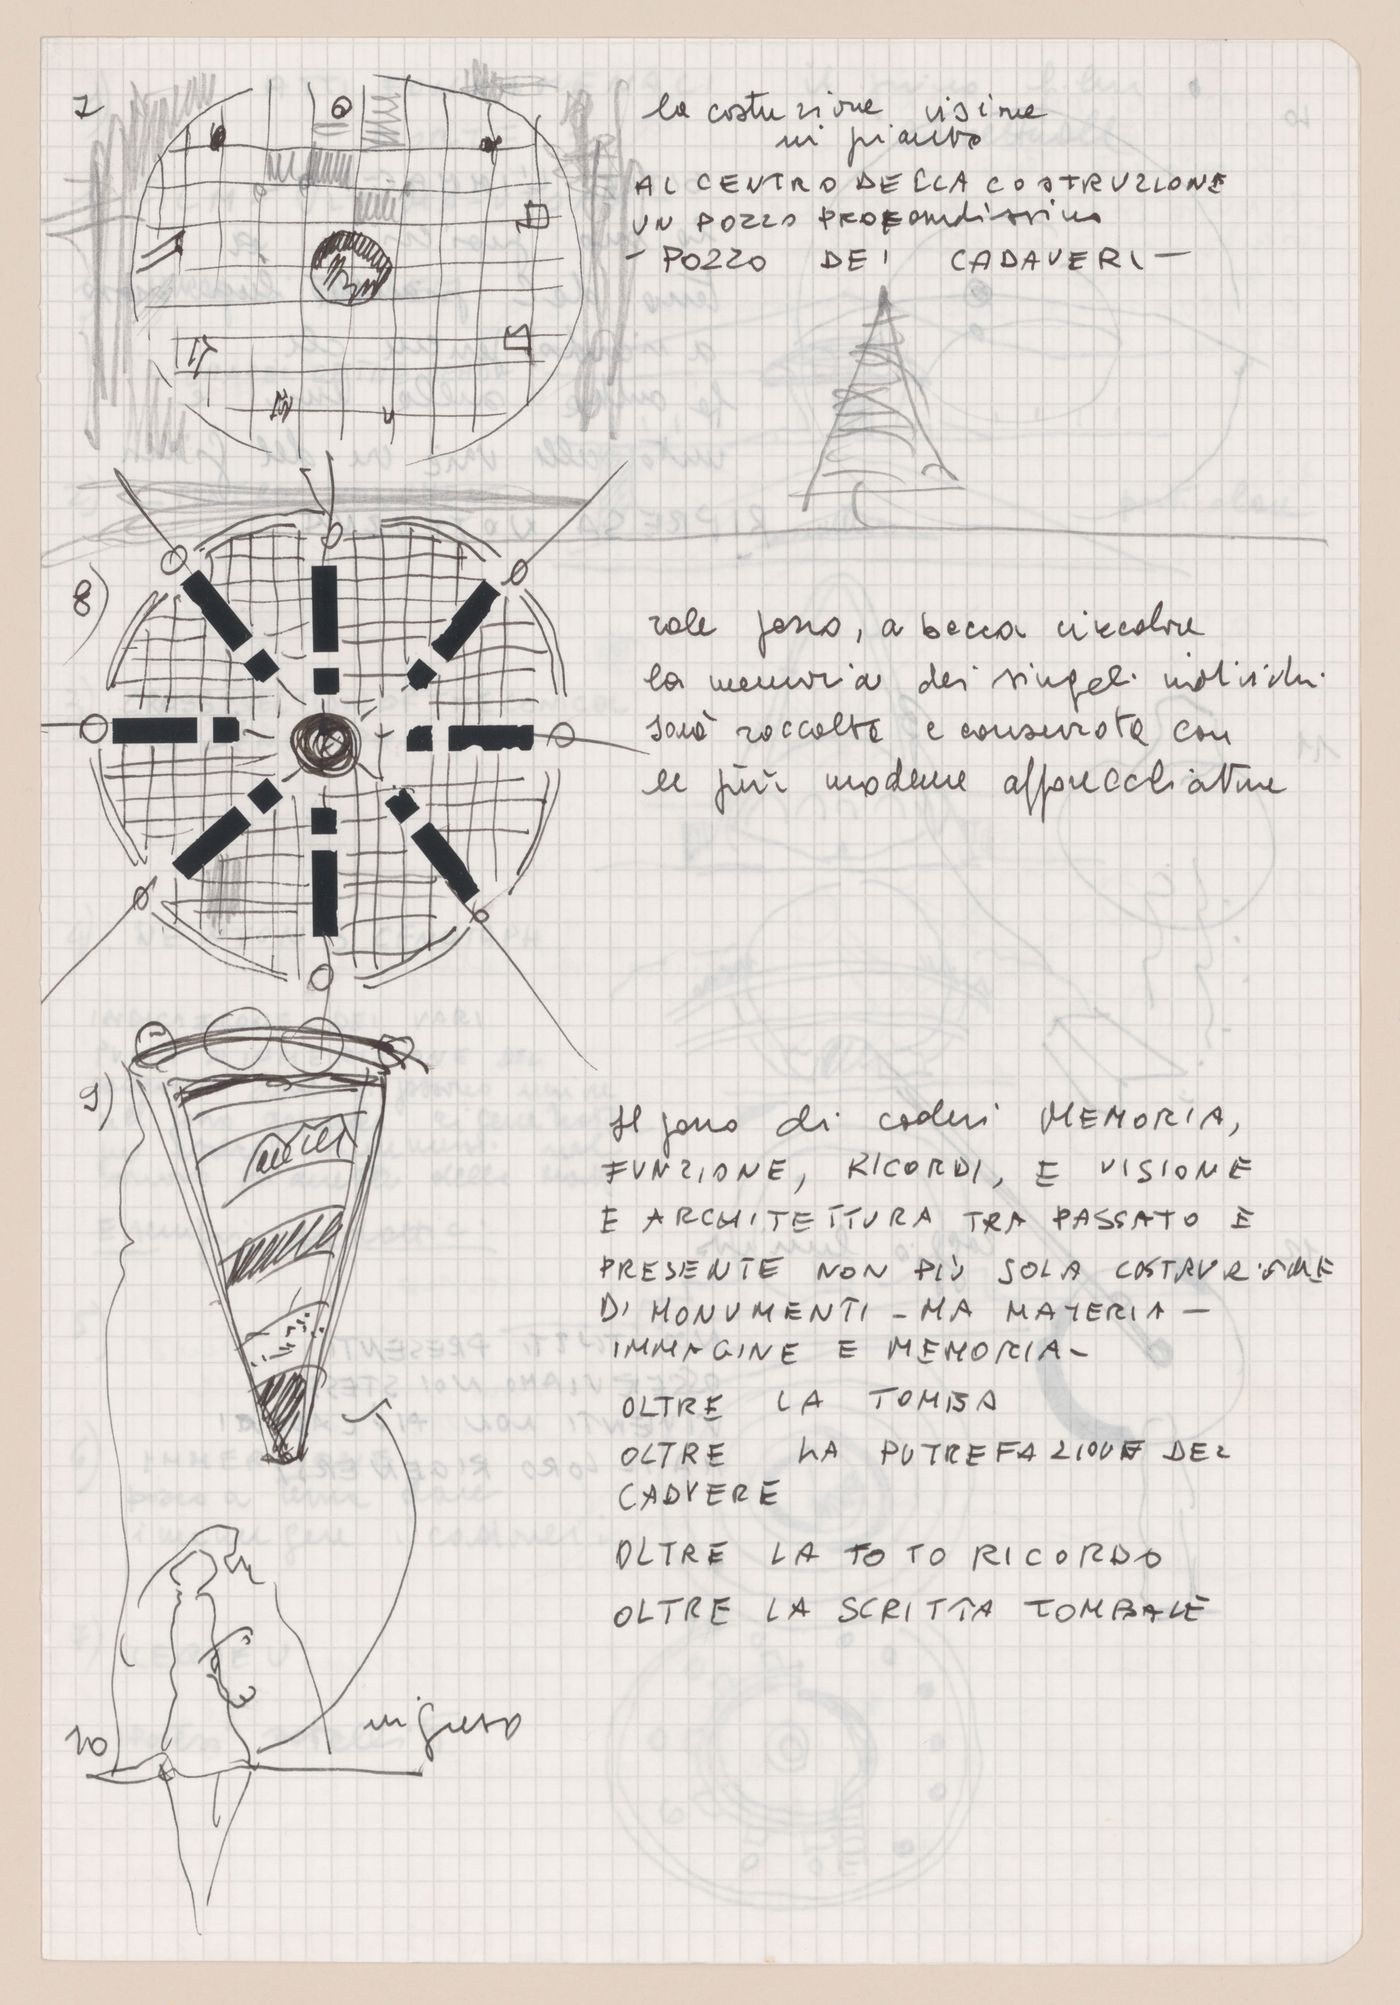 7
la costruzione visione
in pianta
AL CENTRO DELLA COSTRUZIONE
UN POZZO PROFondissimo
- POZZO DEI CADAVERI -
8)
tale pozzo, a bocca circolare
la memoria dei singoli individui
sarà raccolta e conservata con
le più moderne apparecchiature
9)
Il pozzo di caderi MEMORIA,
FUNZIONE, RICORDI, E VISIONE
E ARCHITETTURA TRA PASSATO E
PRESENTE NON PIÙ SOLA COSTRUZIONE
DI MONUMENTI - MA MATERIA -
IMMAGINE E MEMORIA -
OLTRE LA TOMBA
OLTRE LA PUTREFAZIONE DEL
CADVERE
OLTRE LA FOTO RICORDO
OLTRE LA SCRITTA TOMBALE
10
ingresso